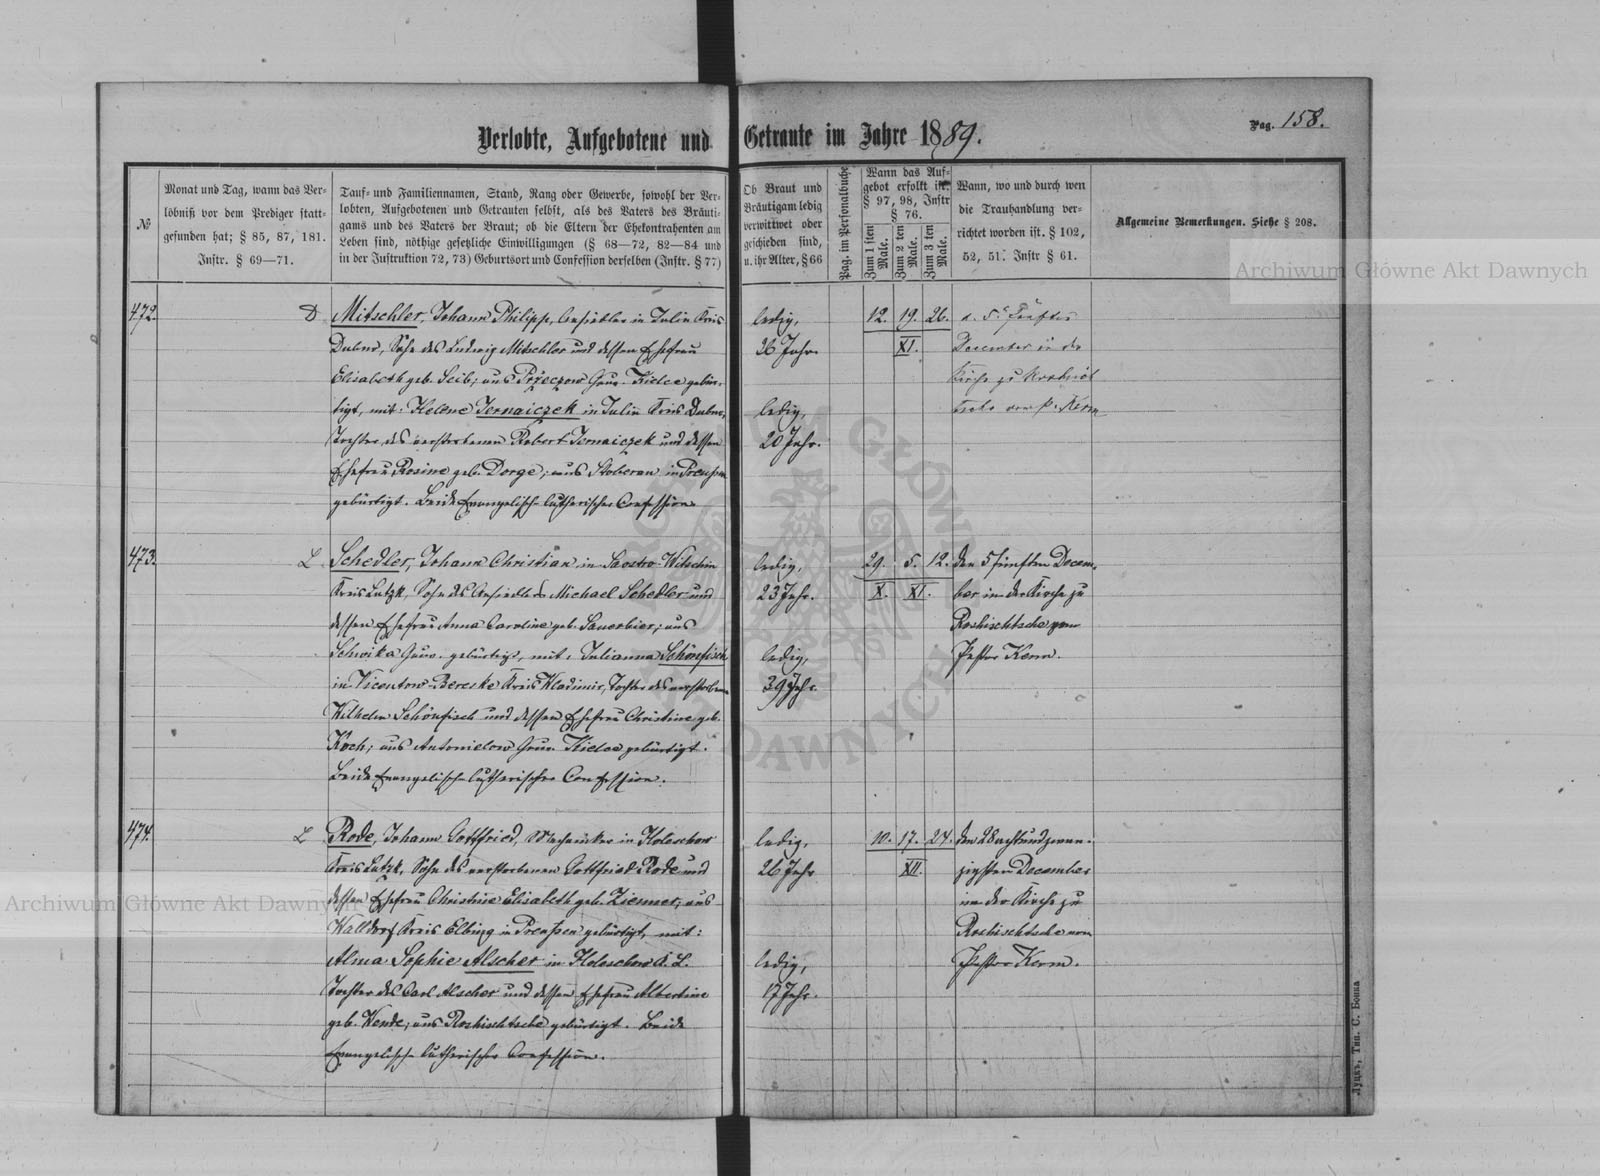 Verlobte, Aufgebotene und Getraute im Jahre 1889.
Pag. 158.
№
Monat und Tag, wann das Ver-
löbniß vor dem Prediger statt-
gefunden hat; § 85, 87, 181.
Instr. § 69—71.
Tauf- und Familiennamen, Stand, Rang oder Gewerbe, sowohl der Ver-
lobten, Aufgebotenen und Getrauten selbst, als des Vaters des Bräuti-
gams und des Vaters der Braut; ob die Eltern der Ehekontrahenten am
Leben sind, nöthige gesetzliche Einwilligungen (§ 68—72, 82—84 und
in der Justruktion 72, 73) Geburtsort und Confession derselben (Instr. § 77)
Ob Braut und
Bräutigam ledig
verwittwet oder
geschieden sind,
u. ihr Alter, § 66
Pag. im Personalbuche
Wann das Auf-
gebot erfolgt ist.
§ 97, 98, Instr
§ 76.
Zum 1 sten
Male.
Zum 2 ten
Male.
Zum 3 ten
Male.
Wann, wo und durch wen
die Trauhandlung ver-
richtet worden ist. § 102,
52, 51. Instr § 61.
Allgemeine Bemerkungen. Siehe § 208.
Archiwum Główne Akt Dawnych
472.
D
Mitschler, Johann Philipp, Ansiedler in Julin Kreis
Dubno, Sohn des Ludwig Mitschler und dessen Ehefrau
Elisabeth geb. Seib; aus Przeczow Gouv. Kielce gebür-
tigt, mit: Helene Jernaiczek in Julin Kreis Dubno,
Tochter des verstorbenen Robert Jernaiczek und dessen
Ehefrau Rosine geb. Dorge; aus Stoberau in Preußen
gebürtigt. Beide Evangelisch-lutherischer Confession.
ledig,
26 Jahr.
ledig,
20 Jahr.
12. 19. 26.
XI.
d. 5. Fünften
December in der
Kirche zu
von P. Kerm
473.
L
Schedler, Johann Christian in Saostro-Witschin
Kreis Lutzk, Sohn des Ansiedlers Michael Schedler und
dessen Ehefrau Anna Caroline geb. Sauerbier; aus
Schoika Gouv. gebürtigt, mit: Julianna Schönfisch
in Vicentow-Bereske Kreis Wladimir, Tochter des verstorbenen
Wilhelm Schönfisch und dessen Ehefrau Christine geb.
Koch; aus Antonielow Gouv. Kielce gebürtigt.
Beide Evangelisch-lutherischer Confession.
ledig,
23 Jahr.
ledig,
39 Jahr.
29. 5. 12.
X. XI.
den 5 fünften Decem-
ber in der Kirche zu
Roshischtsche vom
Pastor Kerm.
474.
L
Rode, Johann Gottfried, Mechaniker in Holoschow
Kreis Lutzk, Sohn des verstorbenen Gottfried Rode und
dessen Ehefrau Christine Elisabeth geb. Ziemer; aus
Walldorf Kreis Elbing in Preußen gebürtigt, mit:
Alma Sophie Alscher in Holoschow K. L.
Tochter des Carl Alscher und dessen Ehefrau Albertine
geb. Wende; aus Roshischtsche gebürtigt. Beide
Evangelisch-lutherischer Confession.
ledig,
26 Jahr
ledig,
17 Jahr.
10. 17. 24.
XII.
den 28 achtundzwan-
zigsten December
in der Kirche zu
Roshischtsche vom
Pastor Kerm.
Archiwum Główne Akt Dawnych
Луцкъ, Тип. С. Бонка